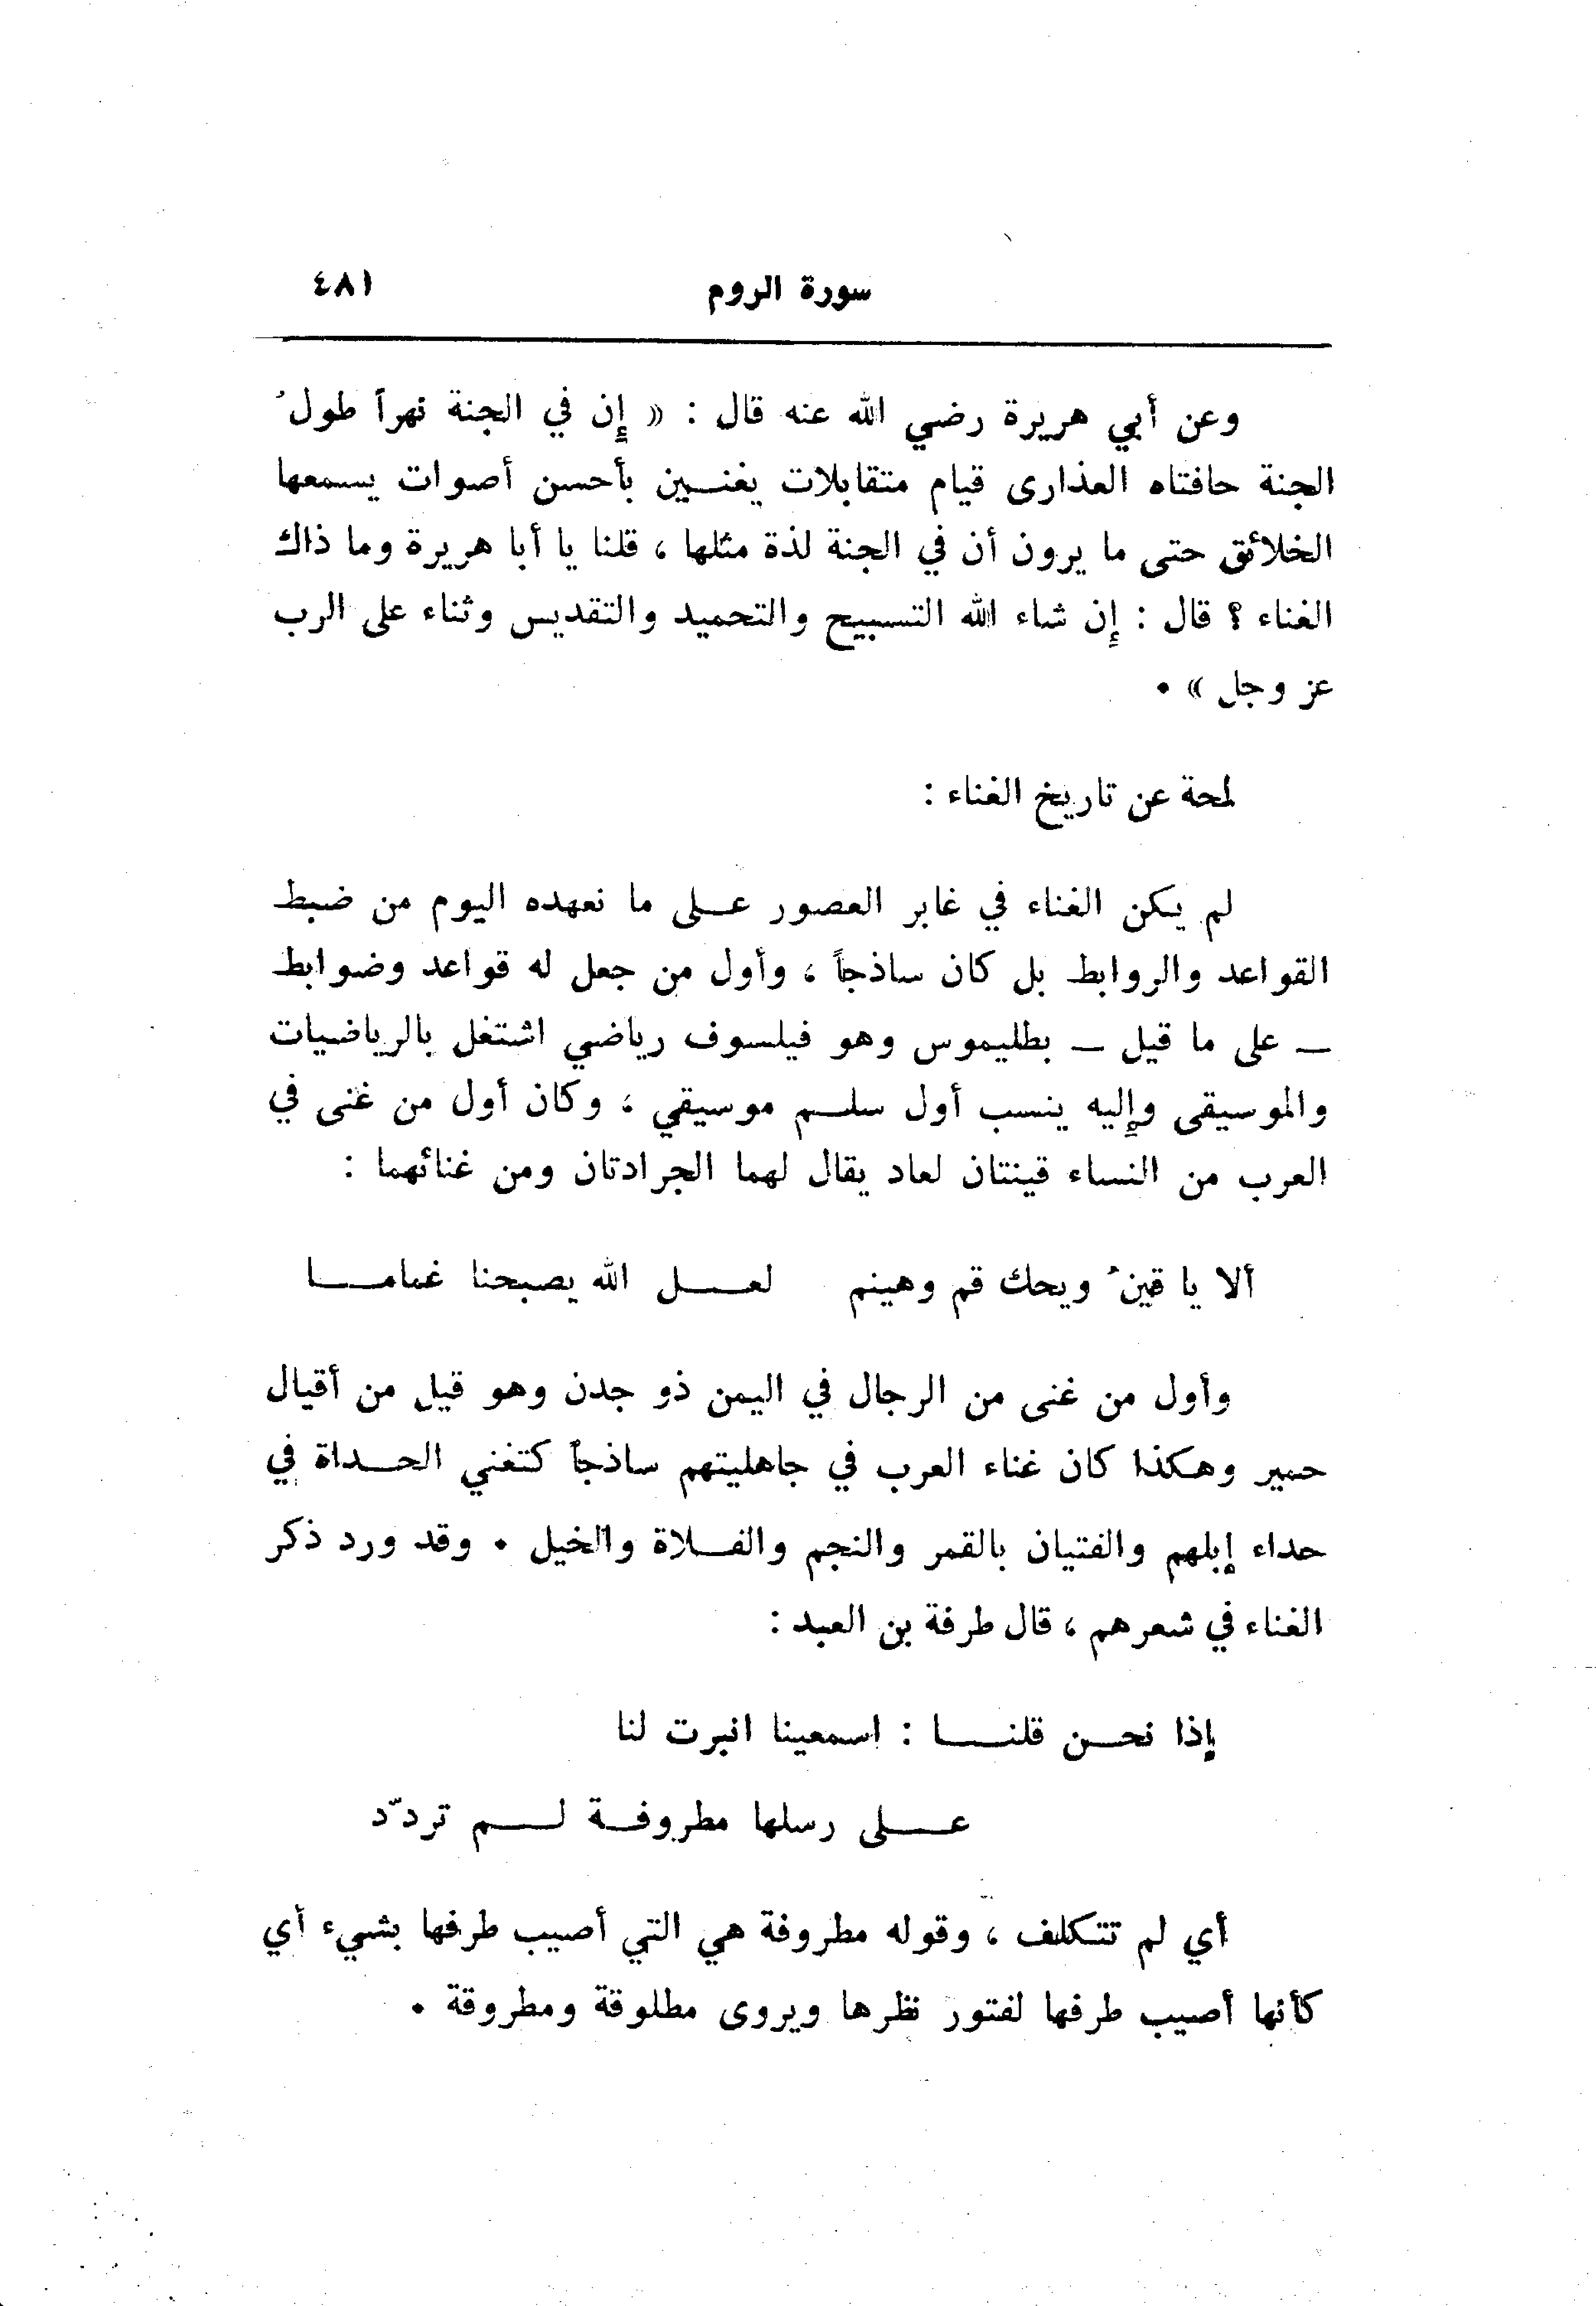 سورة الروم ٤٨١
وعن أبي هريرة رضي الله عنه قال : « إن في الجنة نهراً طولُ
الجنة حافتاه العذارى قيام متقابلات يغنين بأحسن أصوات يسمعها
الخلائق حتى ما يرون أن في الجنة لذة مثلها ، قلنا يا أبا هريرة وما ذاك
الغناء ؟ قال : إن شاء الله التسبيح والتحميد والتقديس وثناء على الرب
عز وجل » .
لمحة عن تاريخ الغناء :
لم يكن الغناء في غابر العصور على ما نعهده اليوم من ضبط
القواعد والروابط بل كان ساذجاً ، وأول من جعل له قواعد وضوابط
ـ على ما قيل ـ بطليموس وهو فيلسوف رياضي اشتغل بالرياضيات
والموسيقى وإليه ينسب أول سلم موسيقي ، وكان أول من غنى في
العرب من النساء قينتان لعاد يقال لهما الجرادتان ومن غنائهما :
ألا يا قينُ ويحك قم وهينم لعل الله يصبحنا غماما
وأول من غنى من الرجال في اليمن ذو جدن وهو قيل من أقيال
حمير وهكذا كان غناء العرب في جاهليتهم ساذجاً كتغني الحداة في
حداء إبلهم والفتيان بالقمر والنجم والفلاة والخيل . وقد ورد ذكر
الغناء في شعرهم ، قال طرفة بن العبد :
إذا نحن قلنا : اسمعينا انبرت لنا
على رسلها مطروفة لم تردّد
أي لم تتكلف ، وقوله مطروفة هي التي أصيب طرفها بشيء أي
كأنها أصيب طرفها لفتور نظرها ويروى مطلوقة ومطروقة .